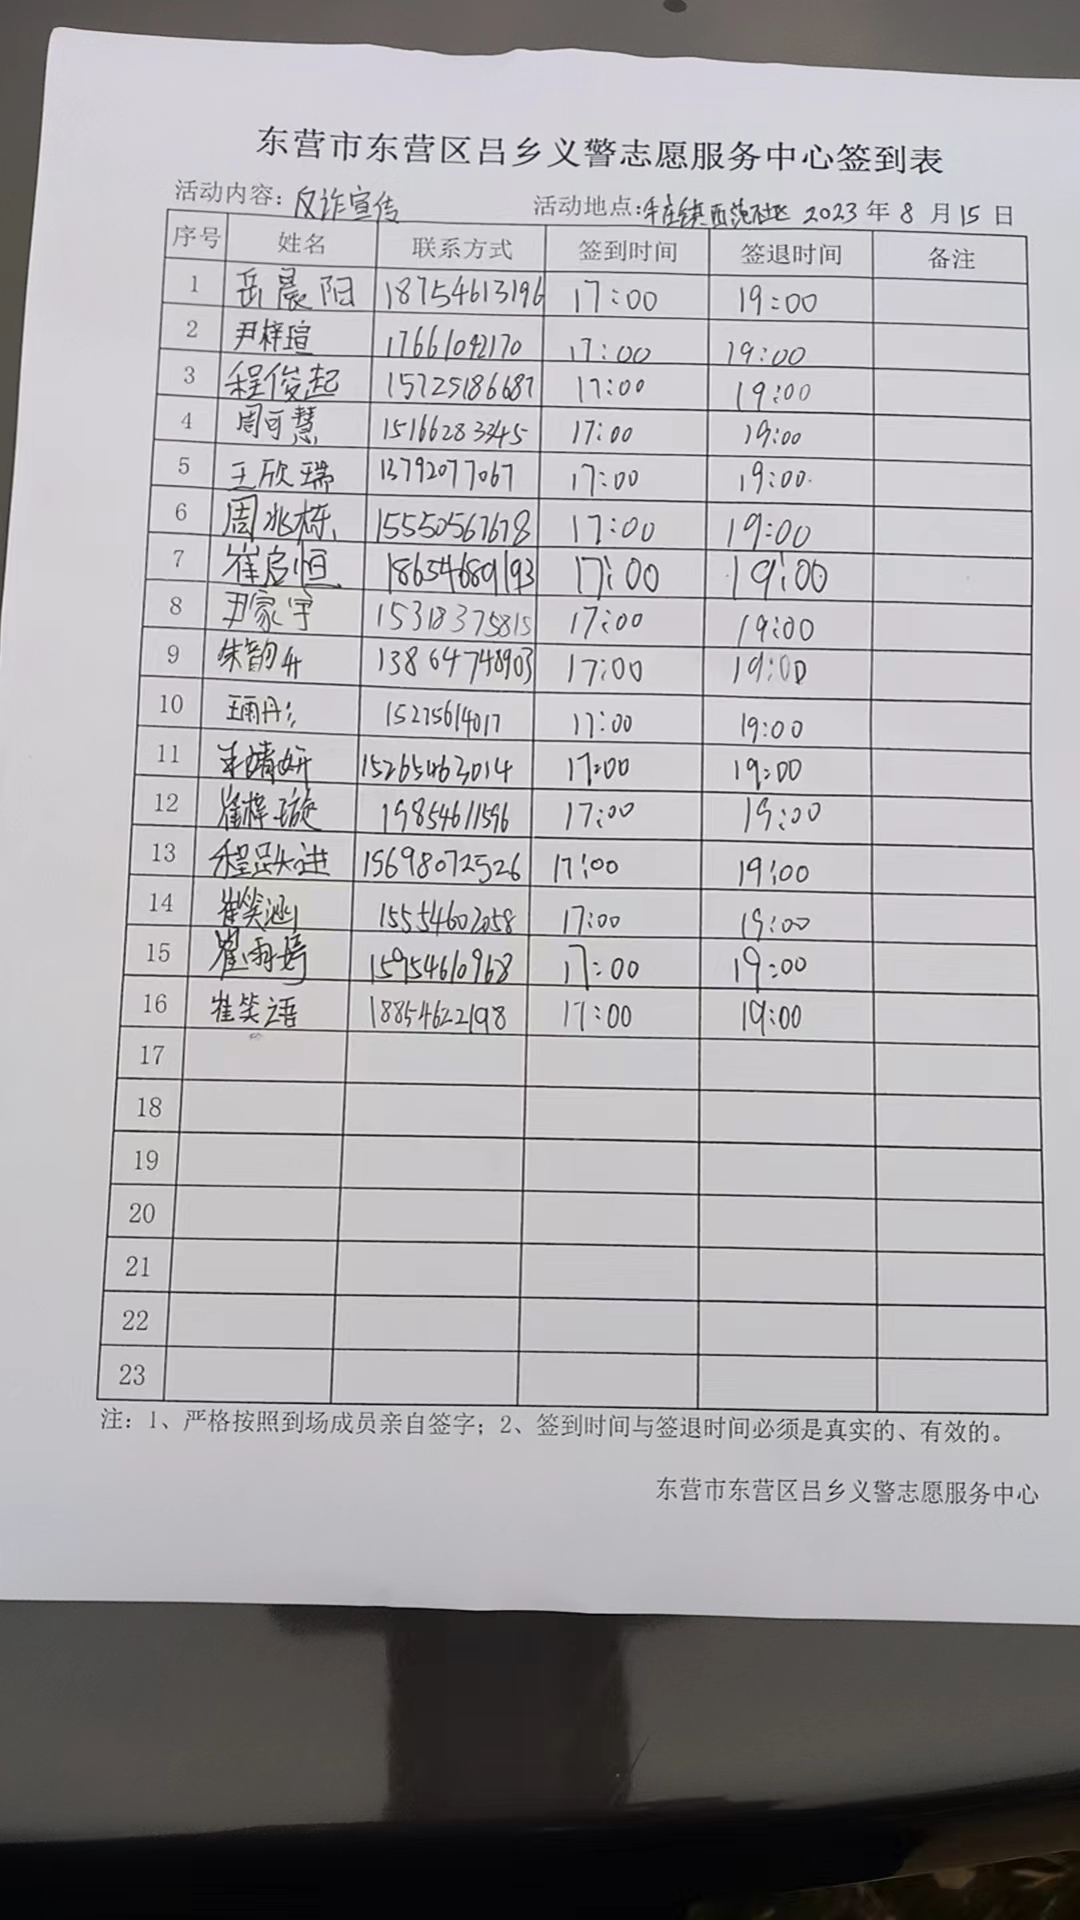 东营市东营区吕乡义警志愿服务中心签到表
活动内容：反诈宣传 活动地点：牛庄镇西范社区 2023年8月15日
序号 姓名 联系方式 签到时间 签退时间 备注
1 岳晨阳 18754613196 17:00 19:00
2 尹梓瑄 17661092170 17:00 19:00
3 程俊起 15725186687 17:00 19:00
4 周可慧 15166283345 17:00 19:00
5 王欣瑞 13792077067 17:00 19:00
6 周兆栋 15550567678 17:00 19:00
7 崔启恒 18654689193 17:00 19:00
8 尹家宇 15318375815 17:00 19:00
9 朱韵 13864748903 17:00 19:00
10 王雨丹 15275614017 17:00 19:00
11 婧妍 15265463014 17:00 19:00
12 崔梓璇 19854611596 17:00 19:00
13 程 进 15698072526 17:00 19:00
14 崔笑涵 15554602058 17:00 19:00
15 崔雨婷 15954610968 17:00 19:00
16 崔笑语 18854622198 17:00 19:00
17
18
19
20
21
22
23
注：1、严格按照到场成员亲自签字；2、签到时间与签退时间必须是真实的、有效的。
东营市东营区吕乡义警志愿服务中心